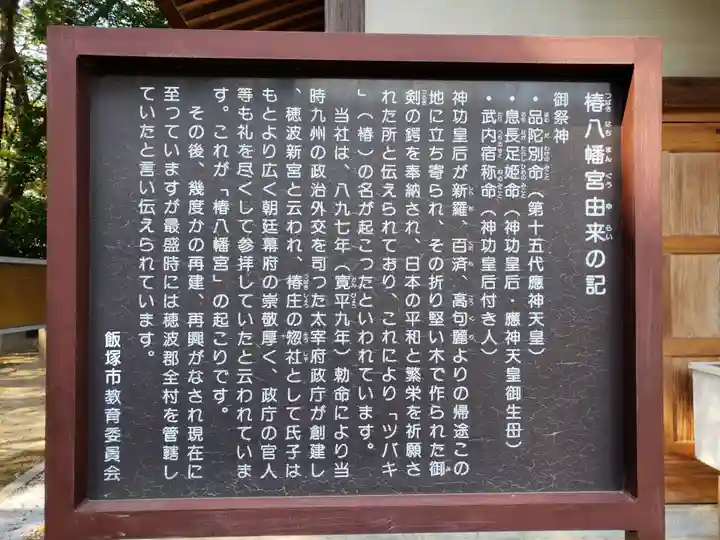 椿八幡宮由来の記
御祭神
・品陀別命（第十五代應神天皇）
・息長足姫命（神功皇后・應神天皇御生母）
・武内宿称命（神功皇后付き人）
神功皇后が新羅、百済、高句麗よりの帰途この
地に立ち寄られ、その折り堅い木で作られた御
剣の鍔を奉納され、日本の平和と繁栄を祈願さ
れた所と伝えられており、これにより「ツバキ
」（椿）の名が起こったといわれています。
当社は、八九七年（寛平九年）勅命により当
時九州の政治外交を司った太宰府政庁が創建し
、穂波新宮と云われ、椿庄の惣社として氏子は
もとより広く朝廷幕府の崇敬厚く、政庁の官人
等も礼を尽くして参拝していたと云われていま
す。これが「椿八幡宮」の起こりです。
その後、幾度かの再建、再興がなされ現在に
至っていますが最盛時には穂波郡全村を管轄し
ていたと言い伝えられています。
飯塚市教育委員会